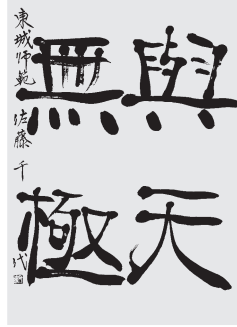 與天
無極
東城师範 佐藤千代